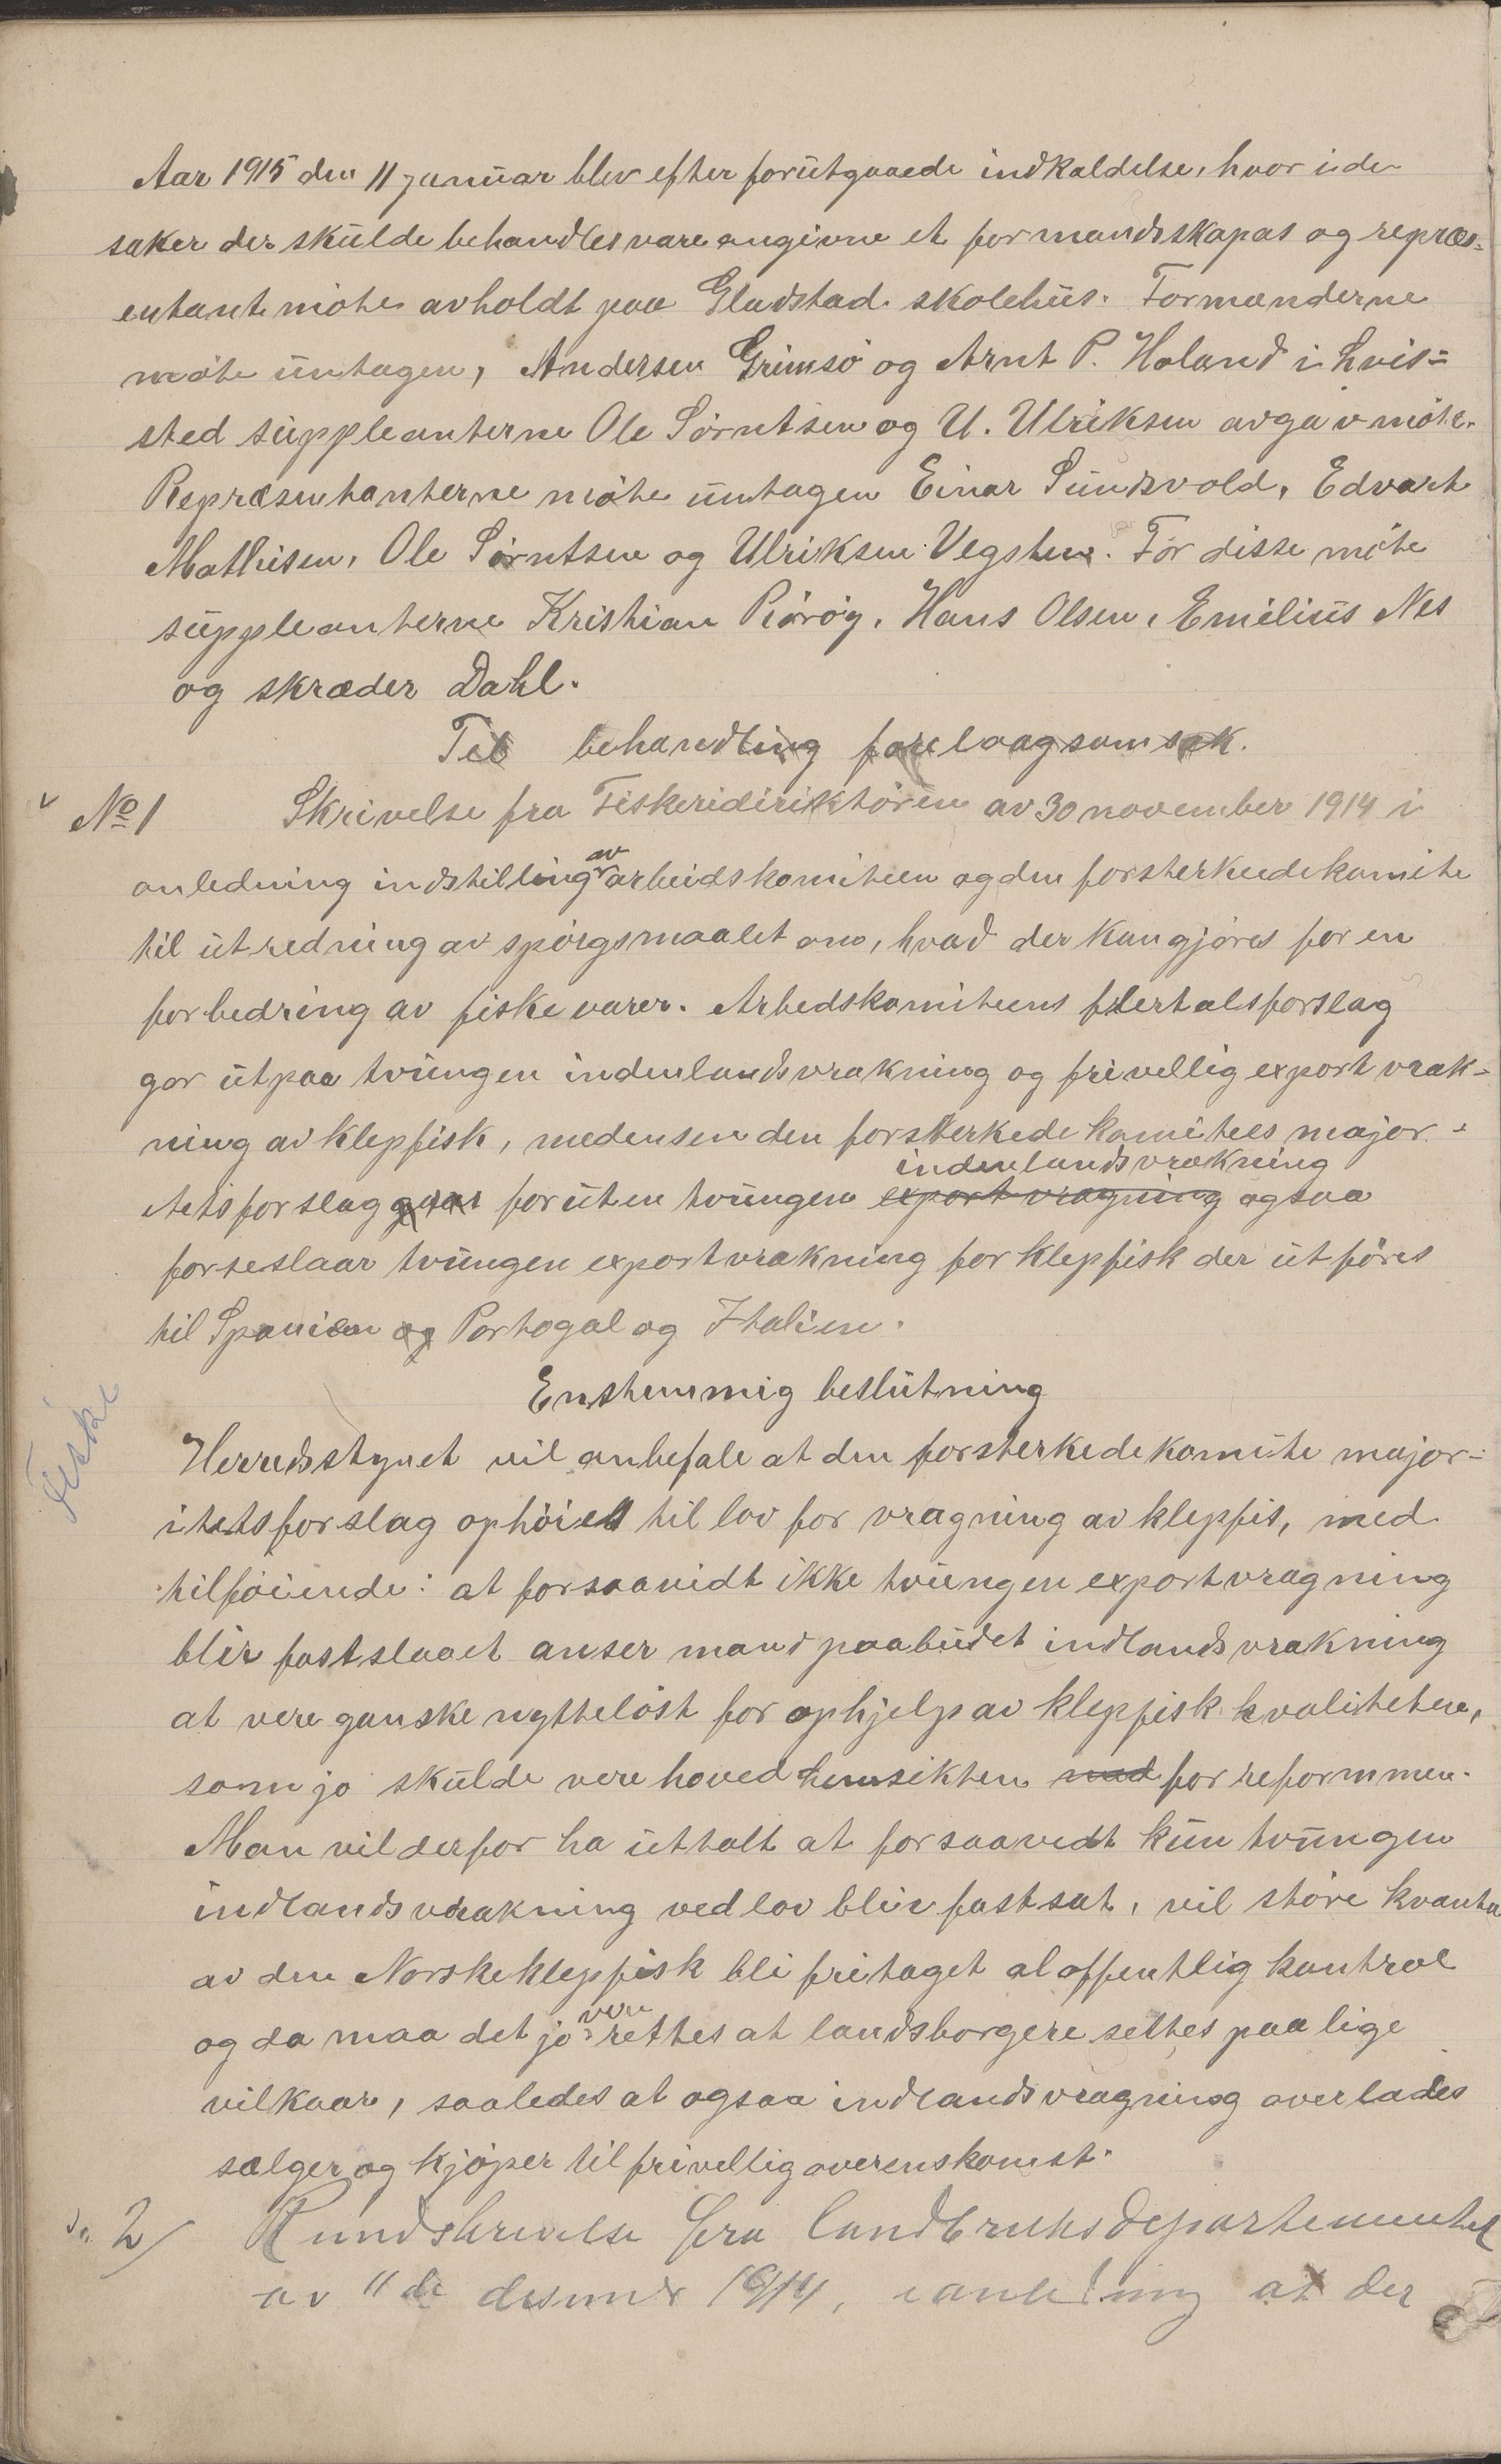 Aar 1915 den 11 januar blev efter forutgaaede indkaldelse, hvor i de
saker der skulde behandles vare angivne et formandsskapas og repræs=
entantmöte avholdt paa Gladstad skolehus. Formænderne
möte untagen, Andersen Grimsö og Arnt P. Holand i hvis=
sted suppleanterne Ole Sörntsen og U. Ulriksen avgav möte.
Repræsentanterne möte untagen Einar Sundsvold, Edvart
Mathisen, Ole Sörntsen og Ulriksen Vegsten. For disse möte
suppleanterne Kristian Rörög, Hans Olsen, Emilius Nes
og skræder Dahl.
Til behandling forelaag som sak.
No 1 Skrivelse fra Fiskeridiriktören av 30 november 1914 i
anledning indstilling av arbeidskomiteen og den forsterkede komite
til utredning av spörgsmaalet om, hvad der kan gjöres for en
forbedring av fiskevarer. Arbedskomiteens flertalsforslag
gar ut paa tvungen indenlandsvrakning og frivellig export vrak-
ning av klepfisk, medensen den forsterkede komitees major-
itetsforslag foruten tvungen indenlandsvrakning export vragning ogsaa
foreslaar tvungen exportvrakning for klepfisk der utföres
til Spanien og Portogal og Italien.
Enstemmig beslutning
Fiske
Herredsstyret vil anbefale at den forsterkede komite major-
itetsforslag ophöies til lov for vragning av klepfis, med
tilföiende: at forsaavidt ikke tvungen exportvragning
blir fastslaaet anser mand paabudet indlandsvrakning
at vere ganske nyttelöst for ophjelp av klepfisk kvaliteten,
som jo skulde vere hovedhensikten med for reformmen.
Man vil derfor ha uttalt at forsaavedt kun tvungen
indlandsvrakning ved lov blir fastsat, vil störe kvanta
av den Norske klepfisk bli fritaget al offentlig kontrol
og da maa det jo vere rettes at landsborgere settes paa lige
vilkaar, saaledes at ogsaa indlandsvragning overlades
sælger og kjöper til frivellig overenskomst.
2/ Rundskrivelse fra Landbruksdepartementet
av 11 de desmbr 1914, i anledning at der